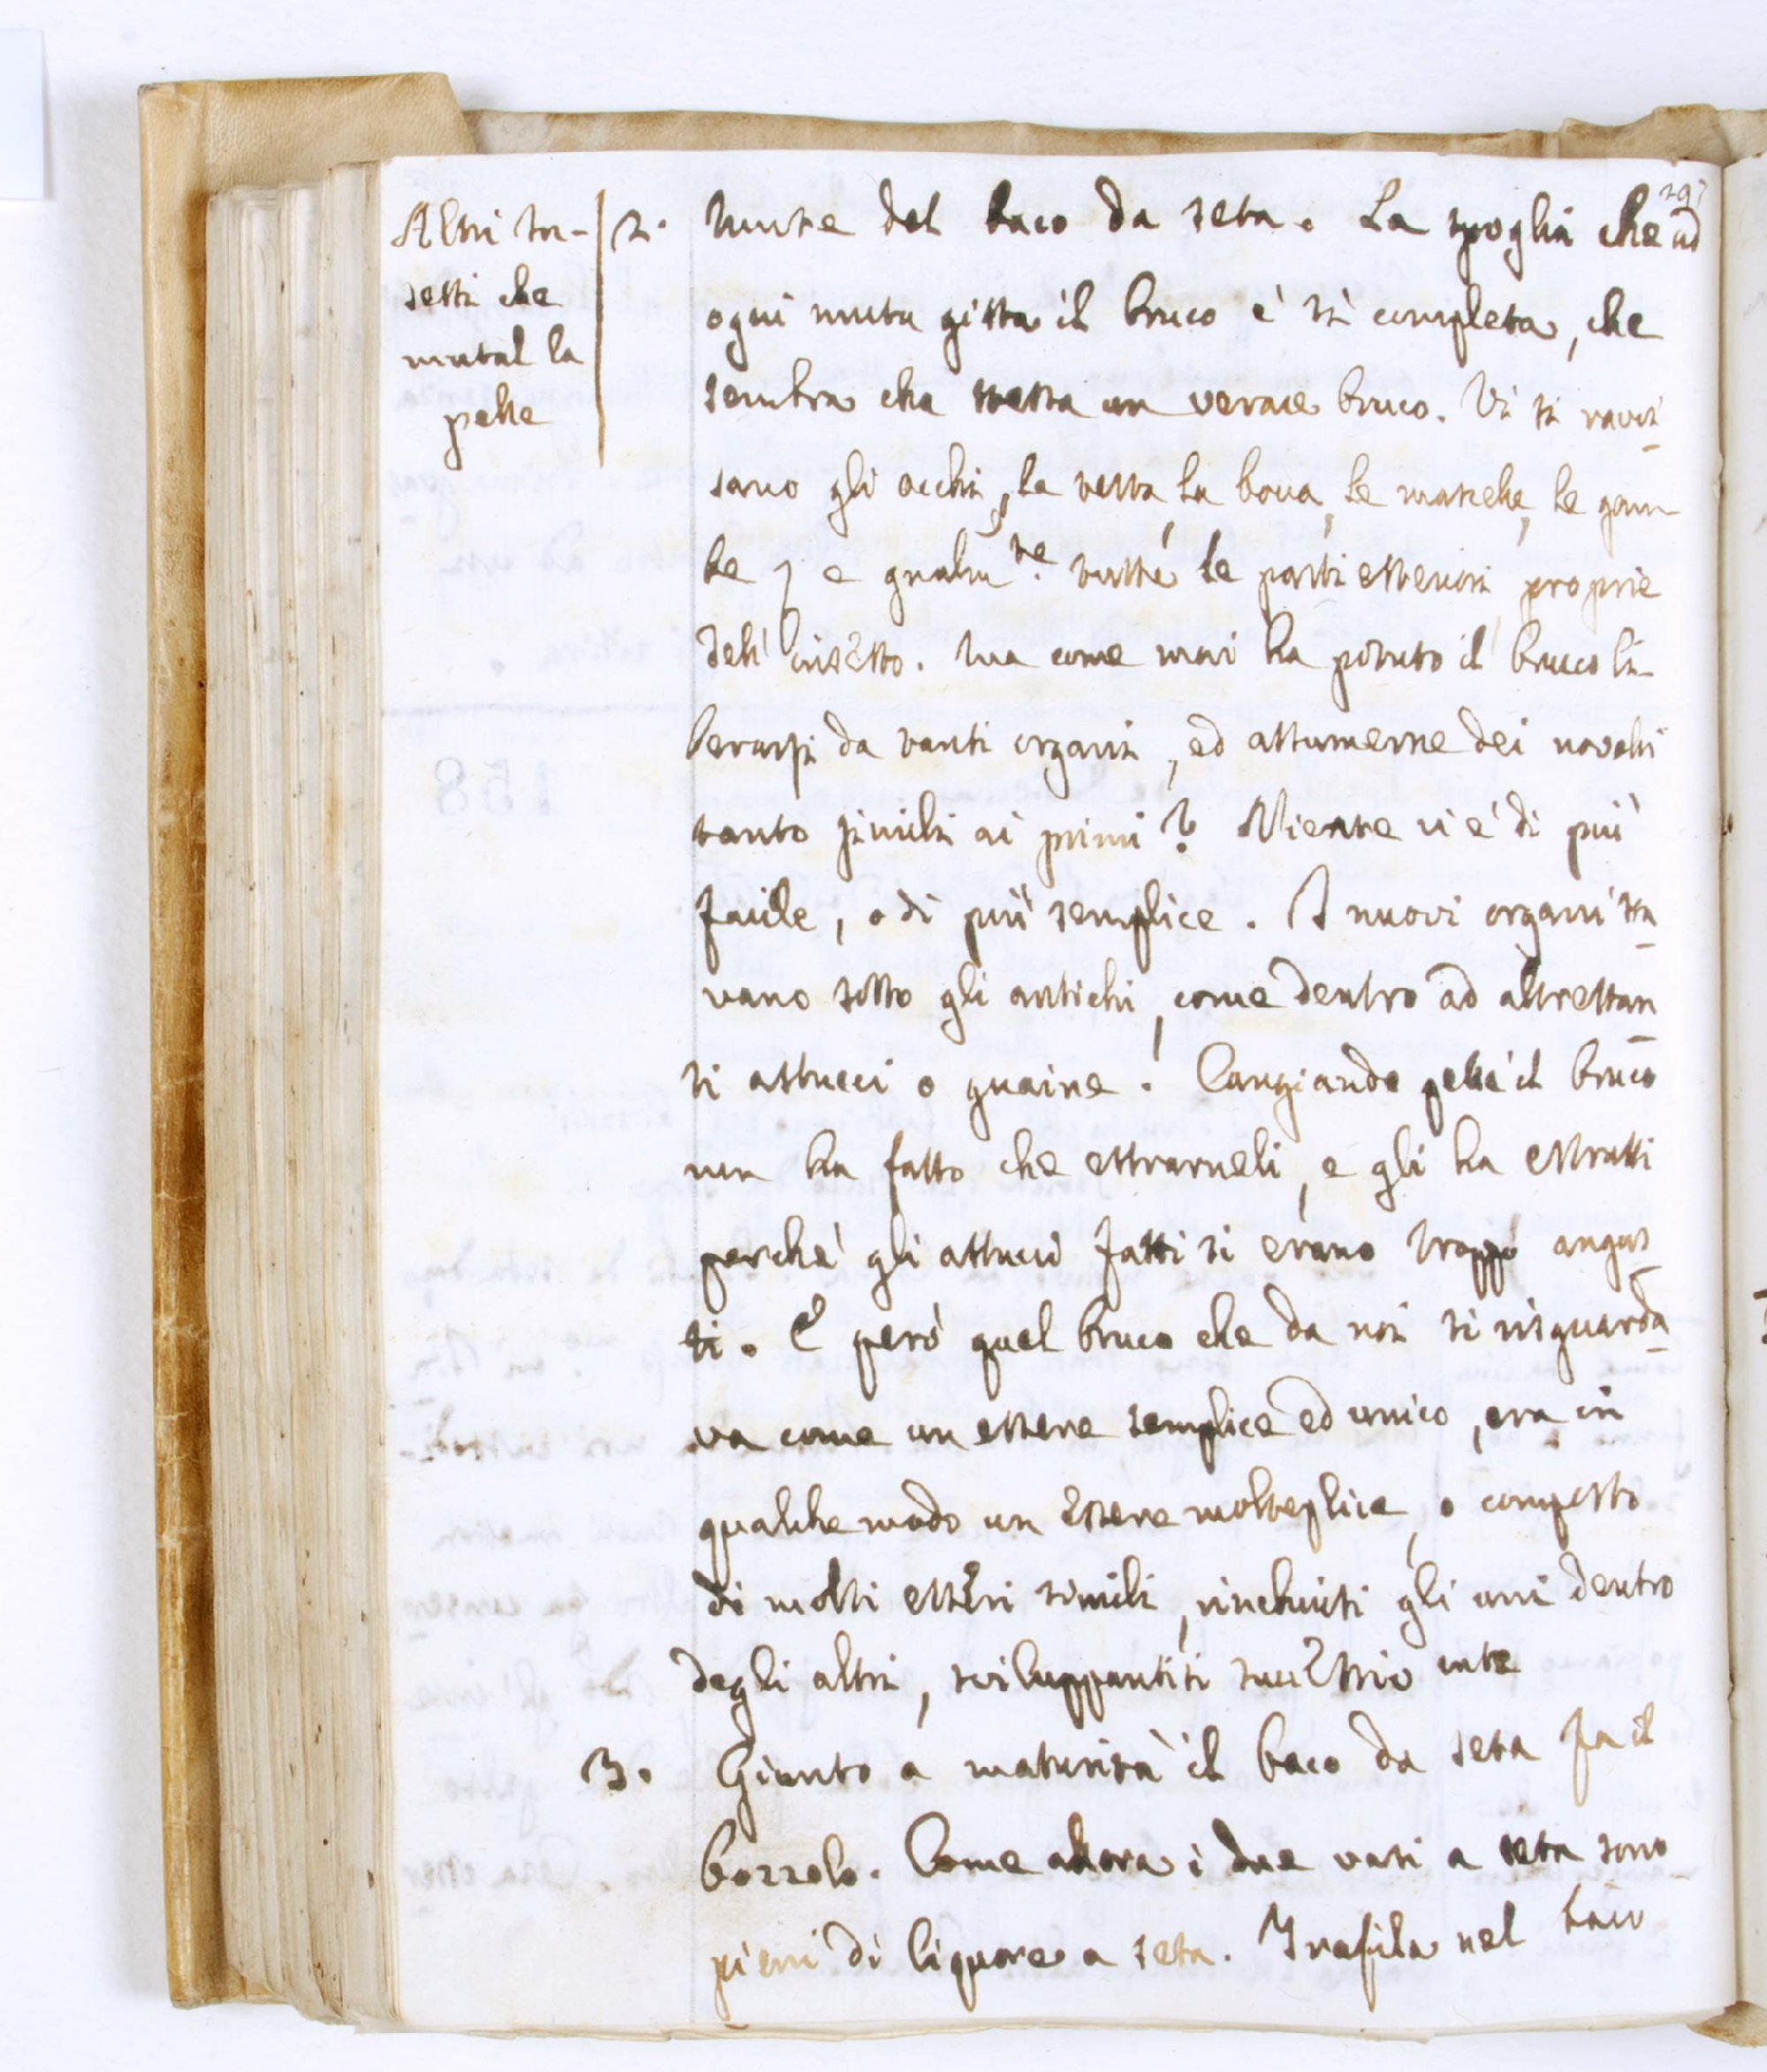 297
Altri In-
setti che
mutal la
pelle
2. Mute del baco da seta. La spoglia che ad
ogni muta gitta il bruco è sì completa, che
sembra che stessa un verace bruco. Vi si ravvi
sano gli occhi, la testa la boca, le masche, le gam
be, e gnalm.te tutte le parti esteriori proprie
dell'insetto. Ma come mai ha potuto il bruco li-
berarsi da tanti organi, ed assumerne dei novelli
tanto simili ai primi? Niente vi è di più
facile, o di più semplice. I nuovi organi sta
vano sotto gli antichi, come dentro ad altrettan
ti astucci o guaine. Cangiando pelle il bruco
non ha fatto che estrarneli, e gli ha estratti
perchè gli astucci fatti si erano troppo angus
ti. E però quel bruco che da noi si risguarda
va come un essere semplice ed unico, era in
qualche modo un essere molteplice, o composto
di molti esseri simili, rinchiusi gli uni dentro
degli altri, sviluppantisi
3. Giunto a maturità il baco da seta fa il
bozzolo. Come allora i due vasi a seta sono
pieni di liquore a seta. Trafila nel baco